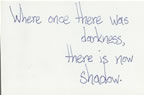 Where once there was
darkness,
there is now
shadow.